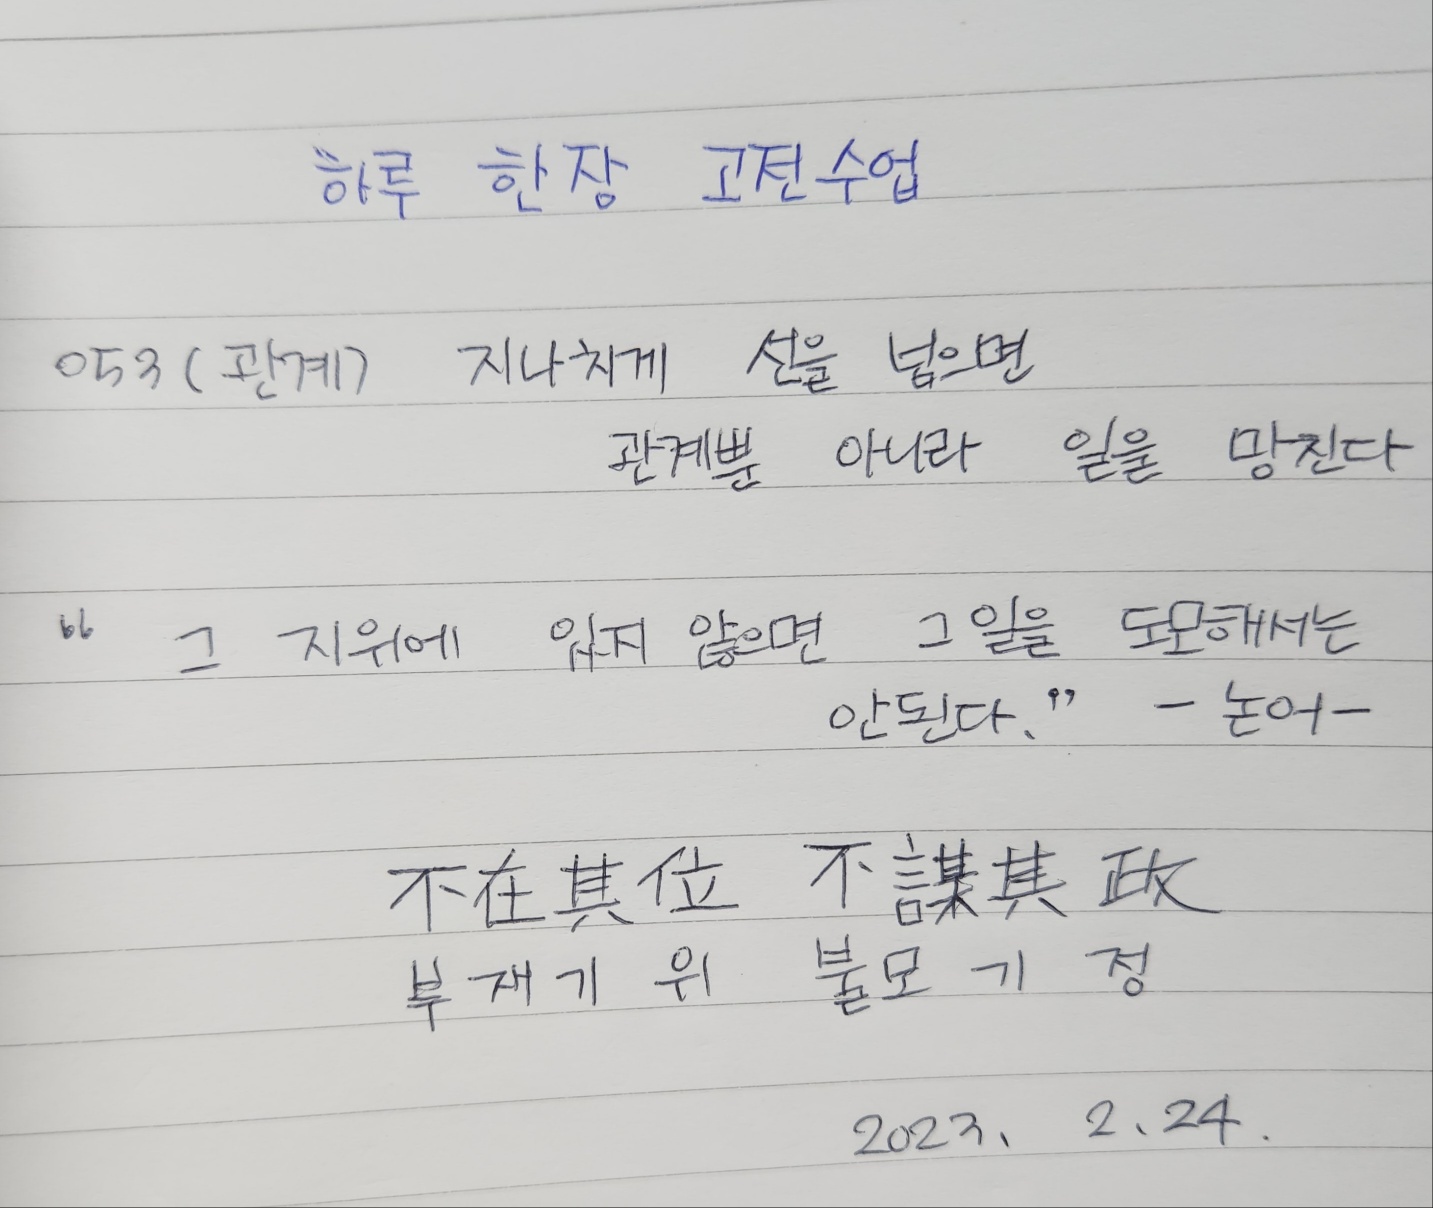 하루 한장 고전수업
053(관계) 지나치게 선을 넘으면
관계뿐 아니라 일을 망친다
“ 그 지위에 있지 않으면 그 일을 도모해서는
안된다.” - 논어 -
不在其位 不謀其政
부재기위 불모기정
2023. 2. 24.